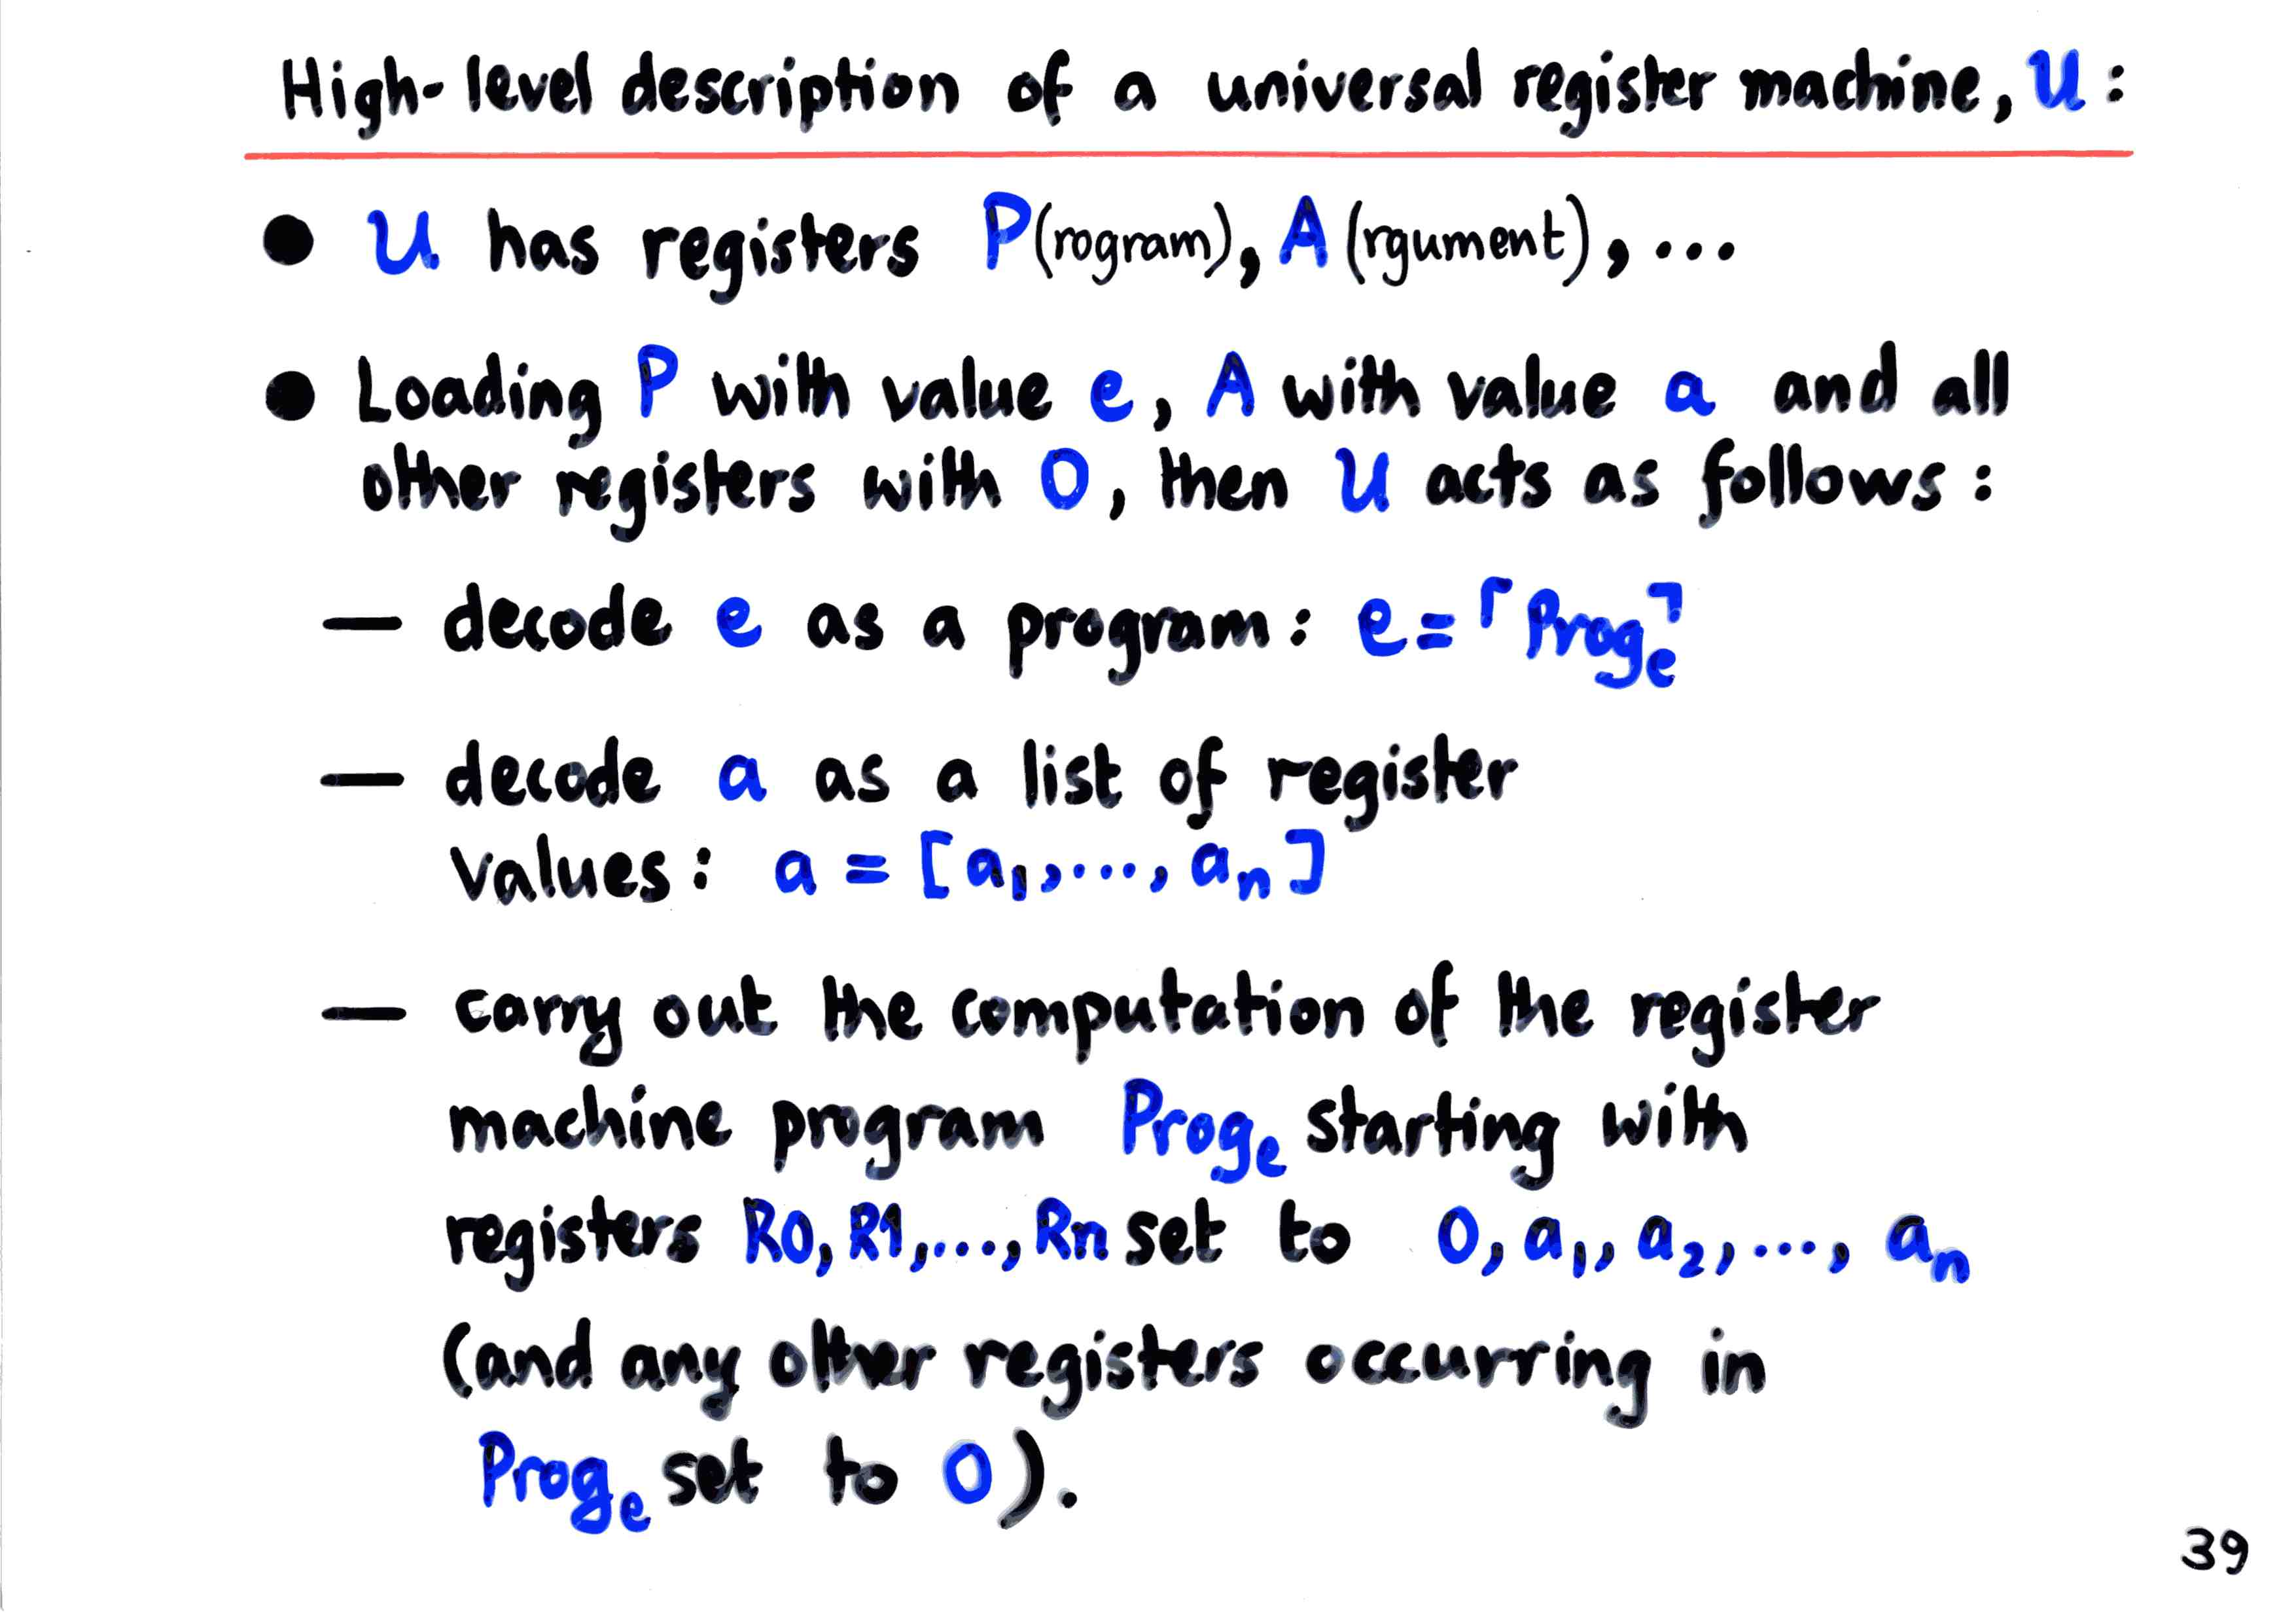 High-level description of a universal register machine, U:
● U has registers P(rogram), A(rgument), ...
● Loading P with value e, A with value a and all
other registers with 0, then U acts as follows:
— decode e as a program: e = ⌜Prog_e⌝
— decode a as a list of register
values: a = [a₁, ..., aₙ]
— carry out the computation of the register
machine program Prog_e starting with
registers R0, R1, ..., Rn set to 0, a₁, a₂, ..., aₙ
(and any other registers occurring in
Prog_e set to 0).
39